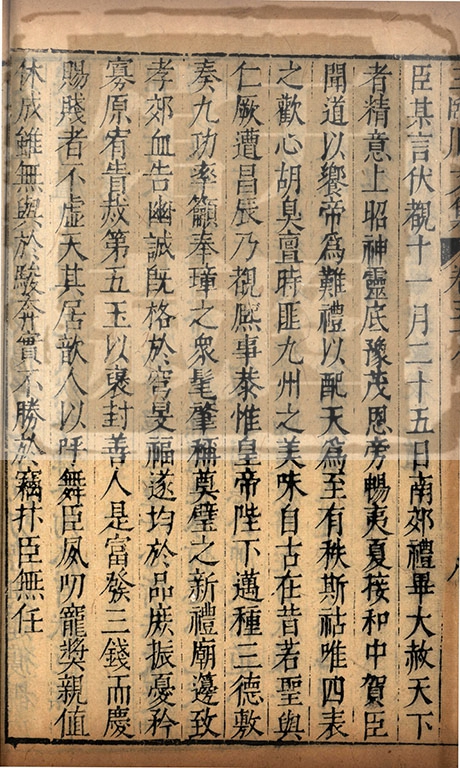 臣某言伏觀十一月二十五日南郊禮畢大赦天下
者精意上昭神靈底豫茂恩旁暢夷夏接和中賀臣
聞道以饗帝為難禮以配天為至有秩斯祜唯四表
之歡心胡臭亶時匪九州之美味自古在昔若聖與
仁厥遭昌辰乃覩熈事恭惟皇帝陛下邁種三德敷
奏九功率籲奉璋之衆髦肇稱奠璧之新禮廟邊致
孝郊血告幽誠旣格於穹旻福遂均於品庶振憂矜
寡原宥眚烖第五玉以褒封善人是富發三錢而慶
賜賤者不虛天其居歆人以呼舞臣夙叨寵奬親值
休成雖無與於駿奔不勝於竊抃臣無任